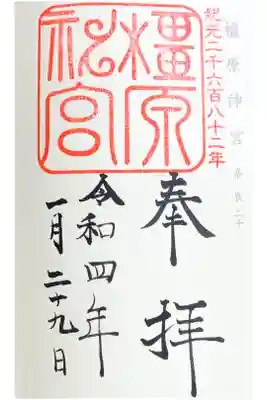 橿原神宮
紀元二千六百八十二年
橿原神宮
奉拝
令和四年
一月二十九日